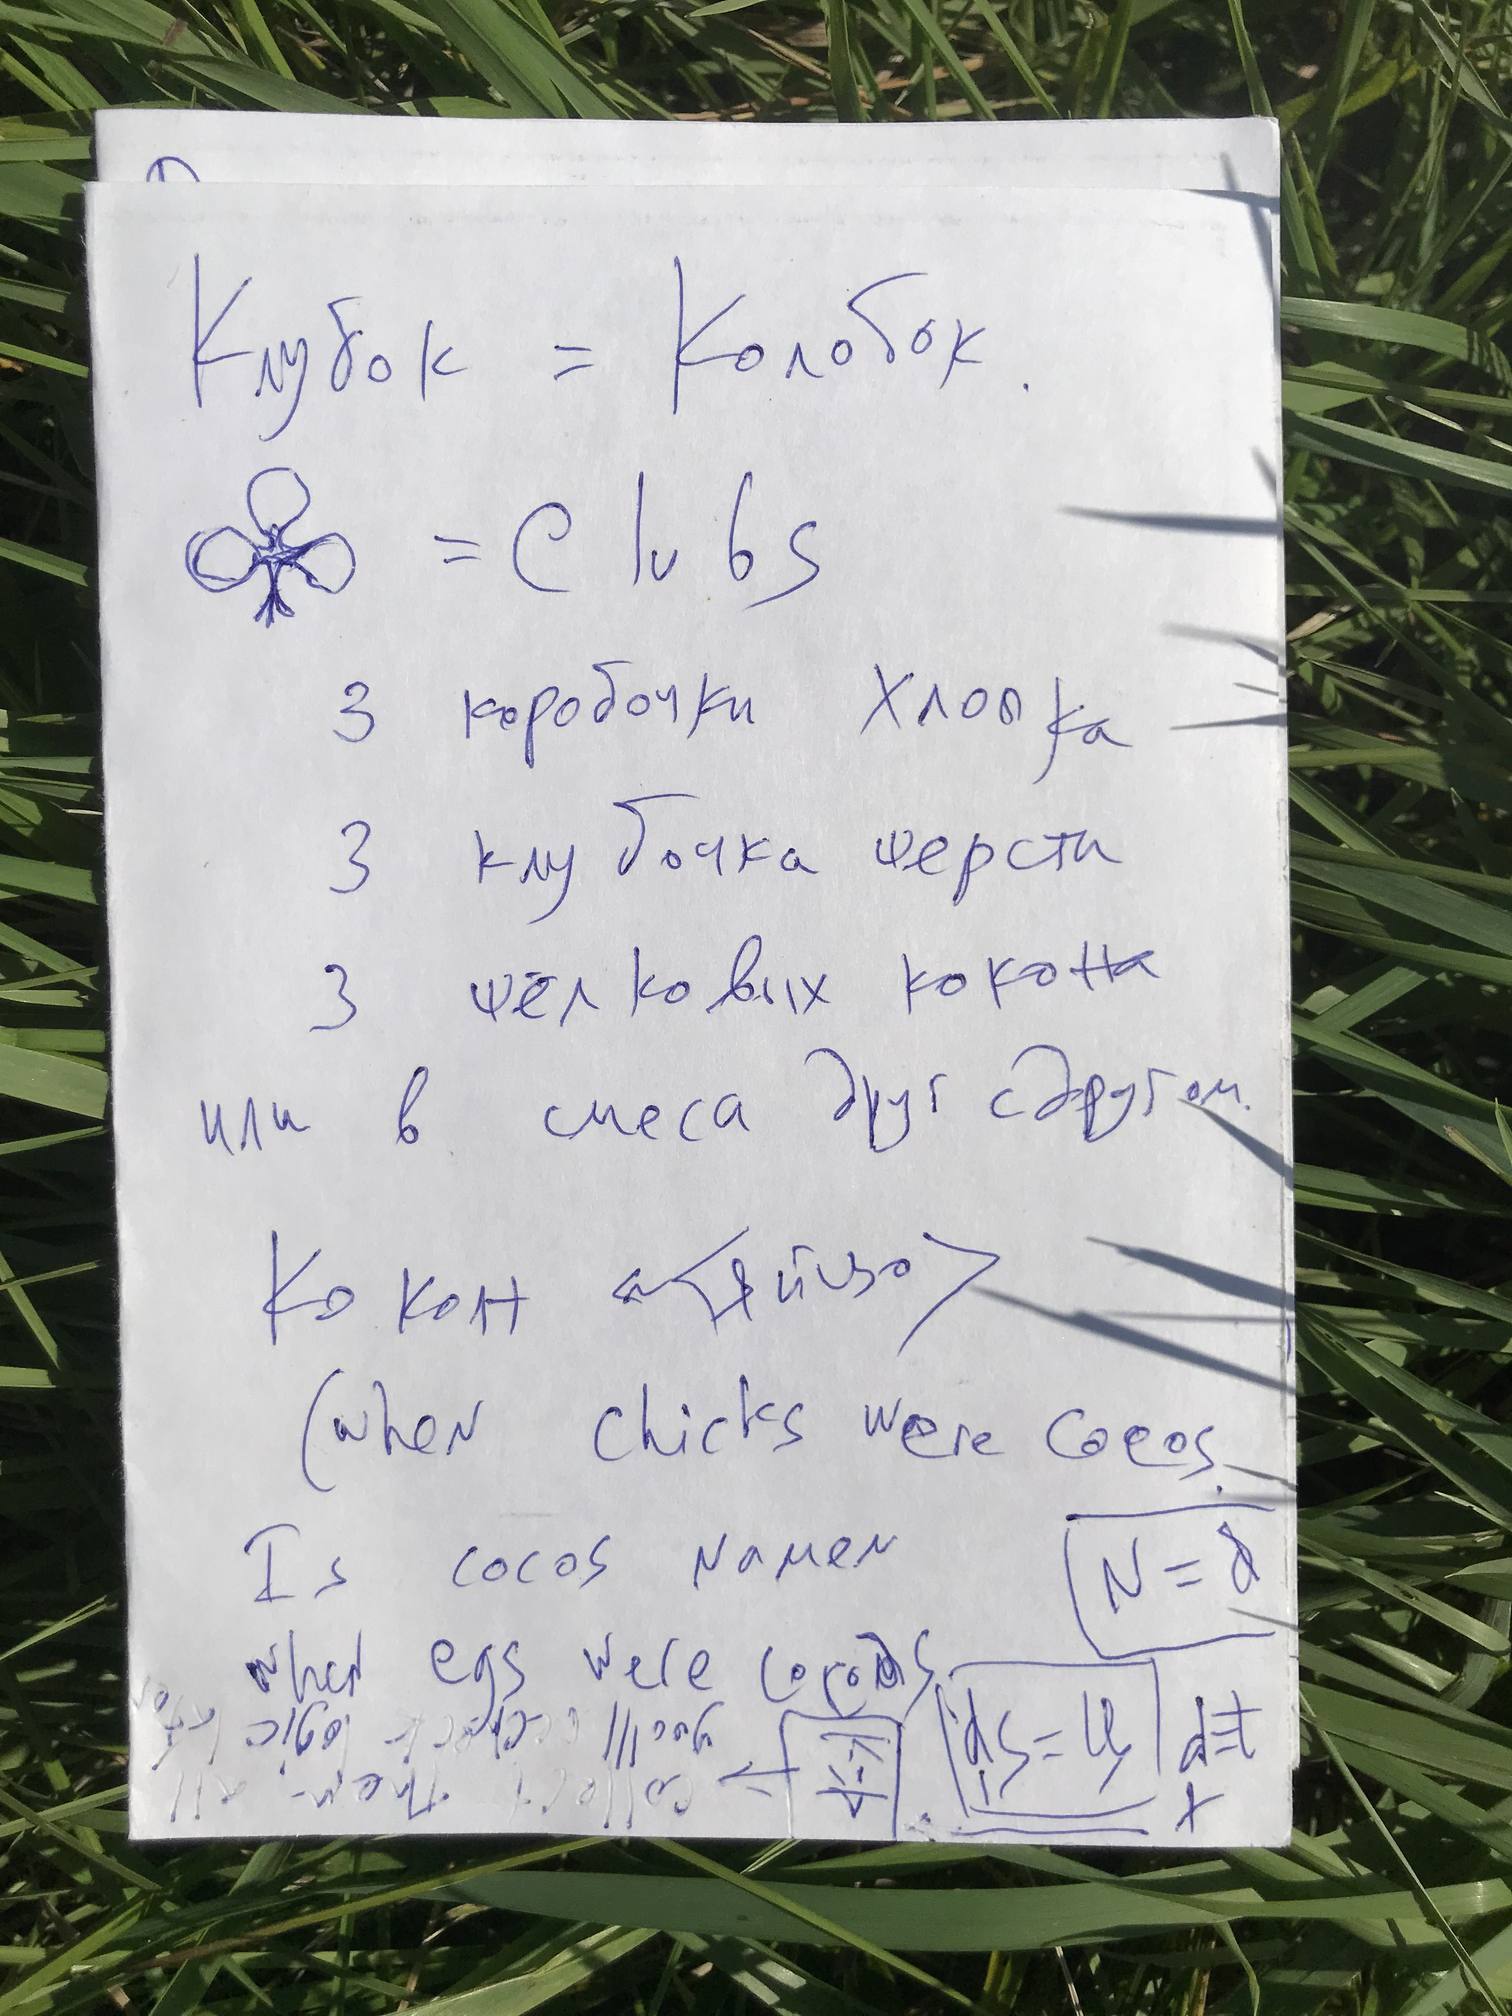 Клубок = Колобок.
♣ = Clubs
3 коробочки хлопка
3 клубочка шерсти
3 шёлковых кокона
или в смеса друг с другом.
Кокон <яйцо>
(when chicks were cocos.
Is cocos namen
N=
when egs were
logic
collect them all